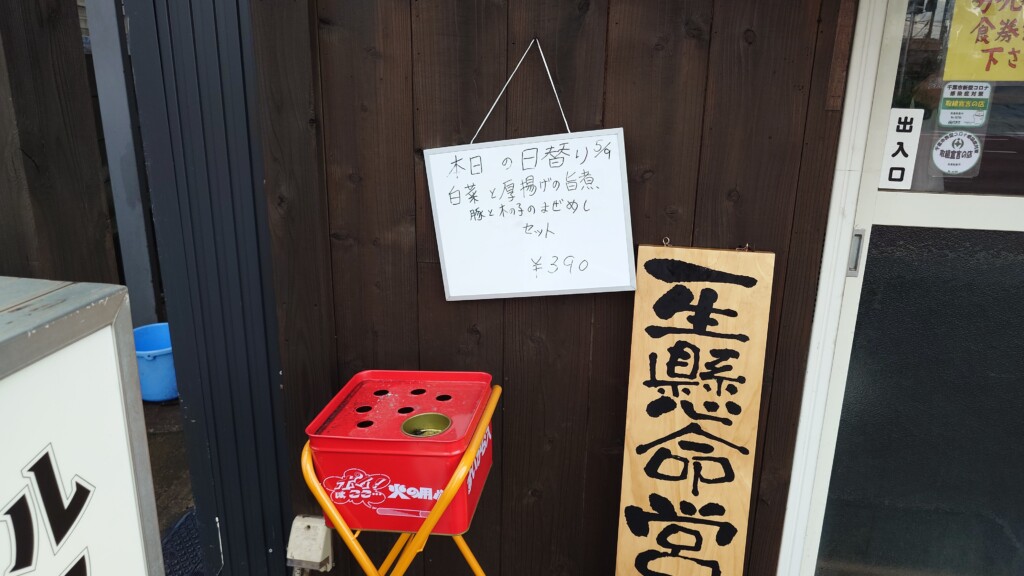 本日の日替り 5/9
白菜と厚揚げの旨煮、
豚と木の子のまぜめし
セット
¥390
一生懸命営
出入口
食券
下さ
千葉市新型コロナ
感染症対策
取組宣言の店
取組宣言の店
ポイ!
はここ
火の用心
ール